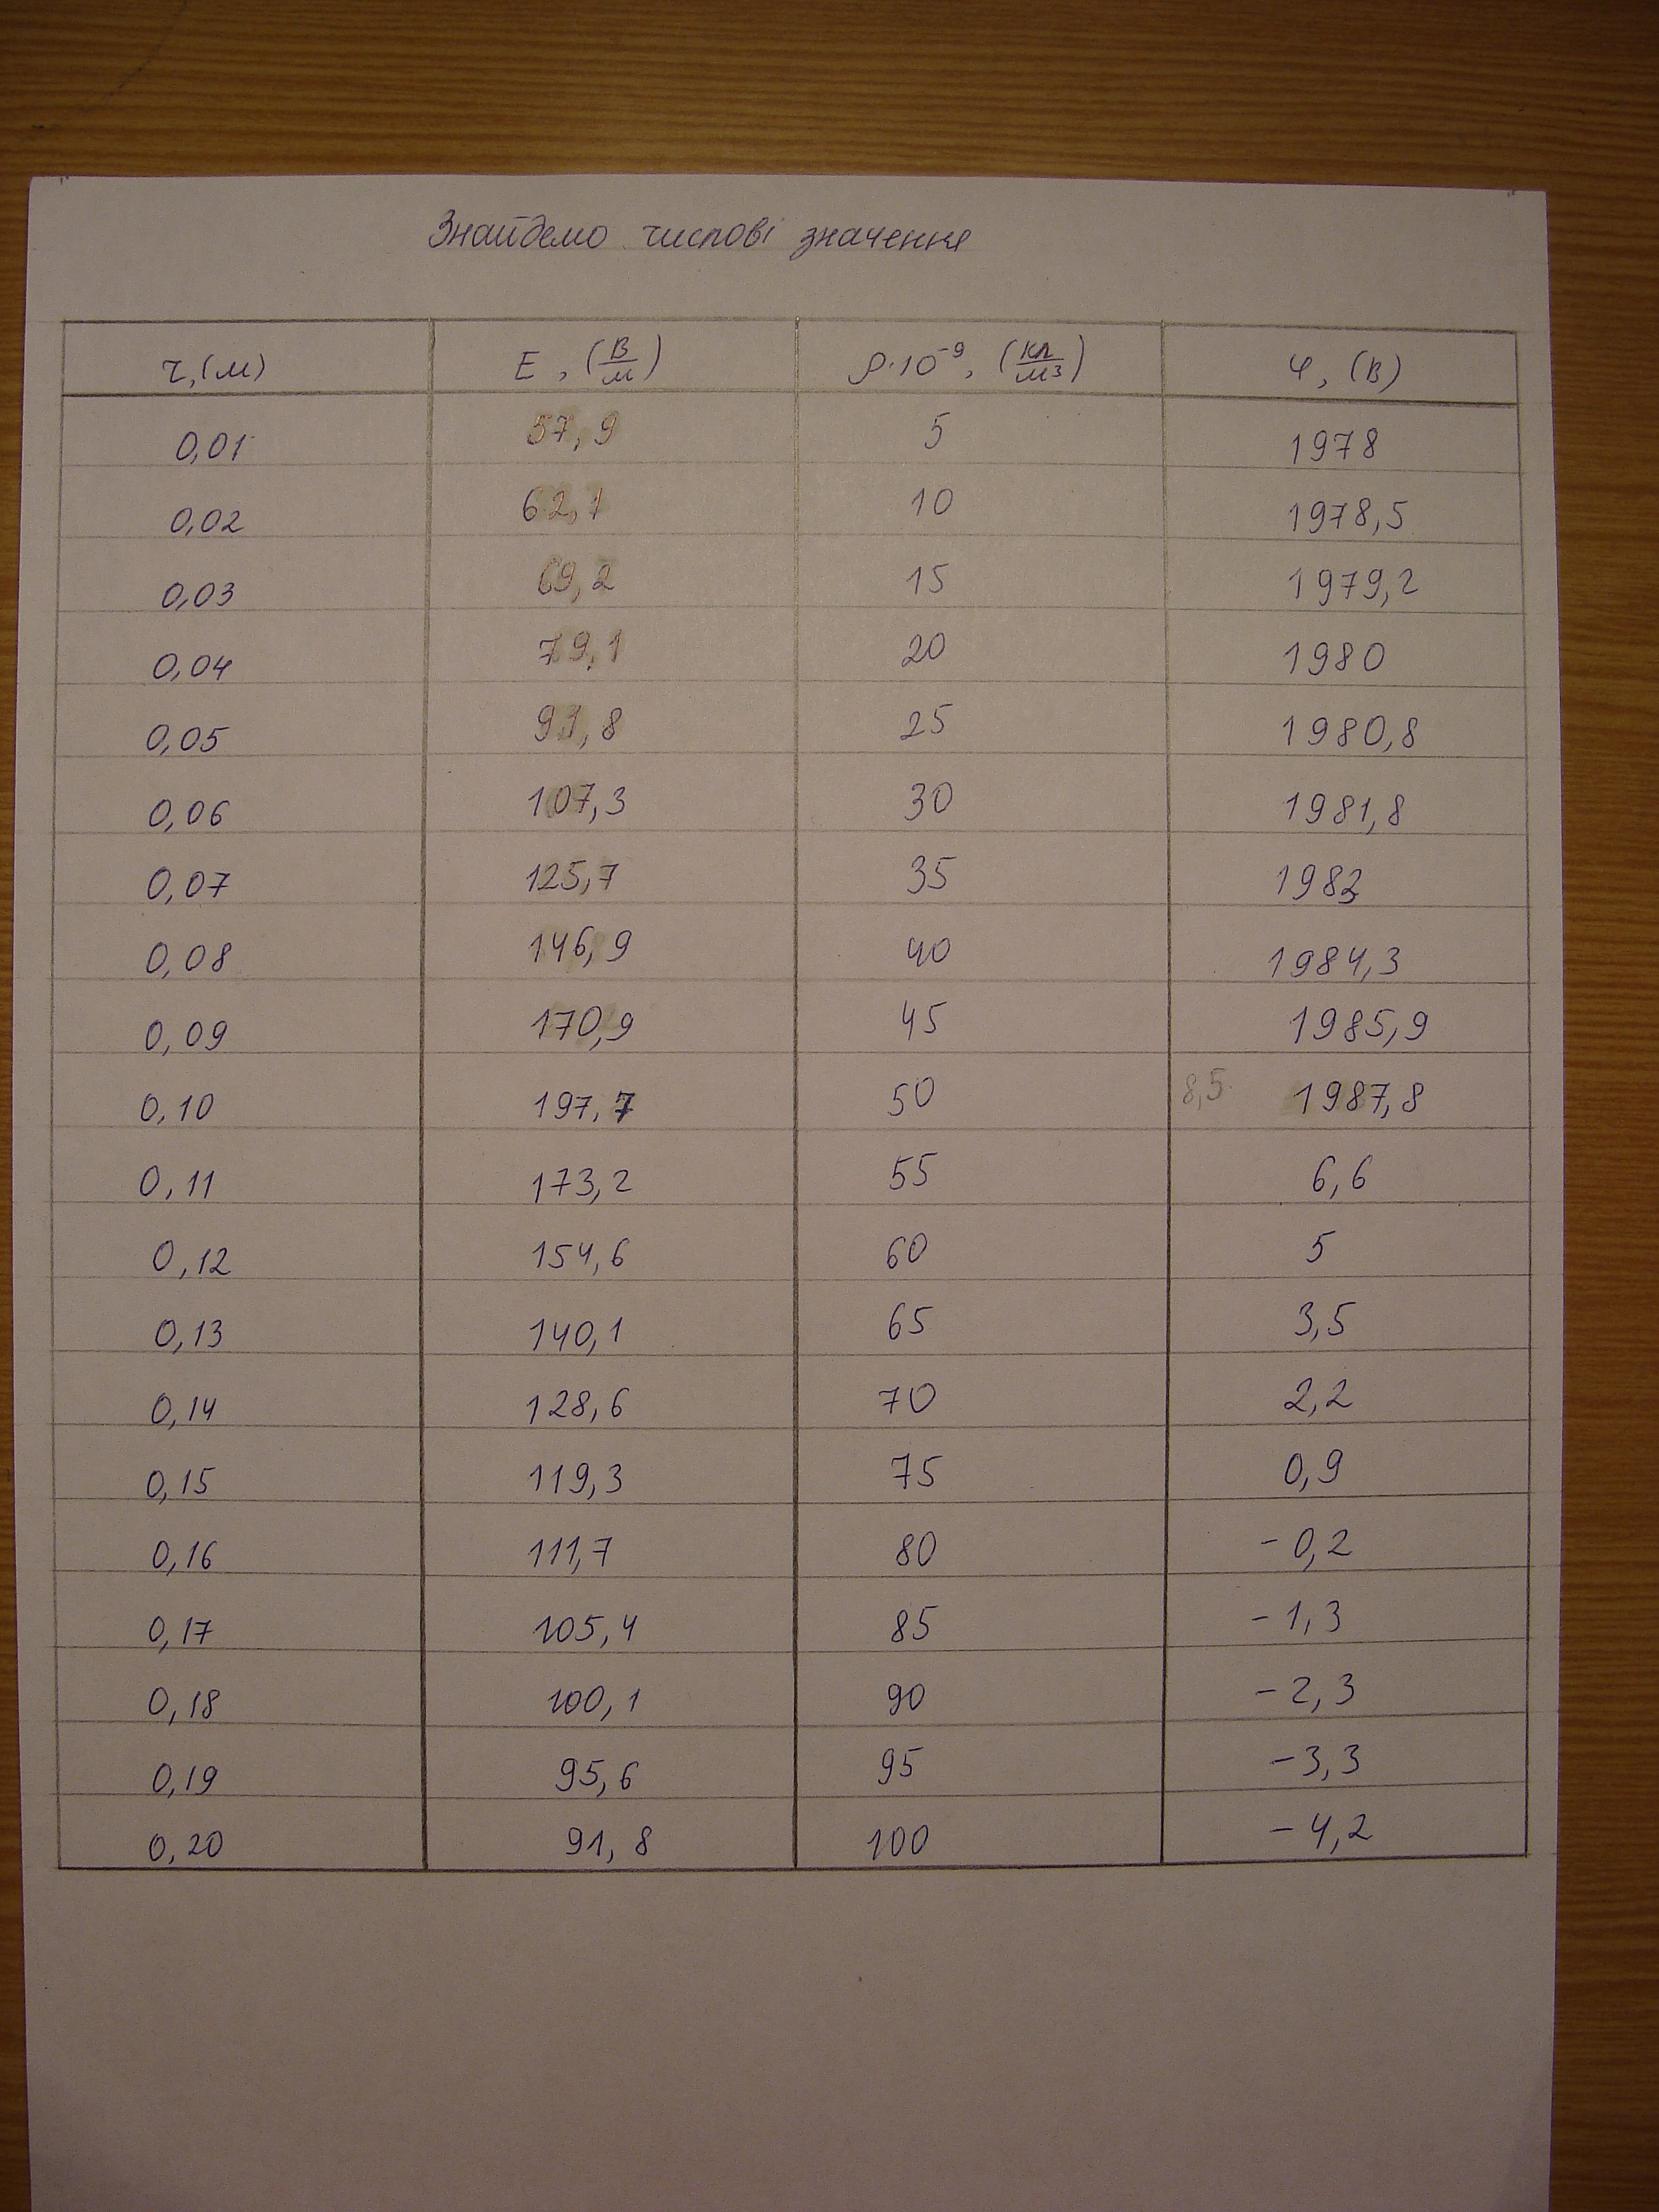 Знайдемо числові значення
r, (м) E, (В/м) ρ·10⁻⁹, (Кл/м³) φ, (В)
0,01 57,9 5 1978
0,02 62,1 10 1978,5
0,03 69,2 15 1979,2
0,04 79,1 20 1980
0,05 91,8 25 1980,8
0,06 107,3 30 1981,8
0,07 125,7 35 1983
0,08 146,9 40 1984,3
0,09 170,9 45 1985,9
0,10 197,7 50 8,5 1987,8
0,11 173,2 55 6,6
0,12 154,6 60 5
0,13 140,1 65 3,5
0,14 128,6 70 2,2
0,15 119,3 75 0,9
0,16 111,7 80 -0,2
0,17 105,4 85 -1,3
0,18 100,1 90 -2,3
0,19 95,6 95 -3,3
0,20 91,8 100 -4,2